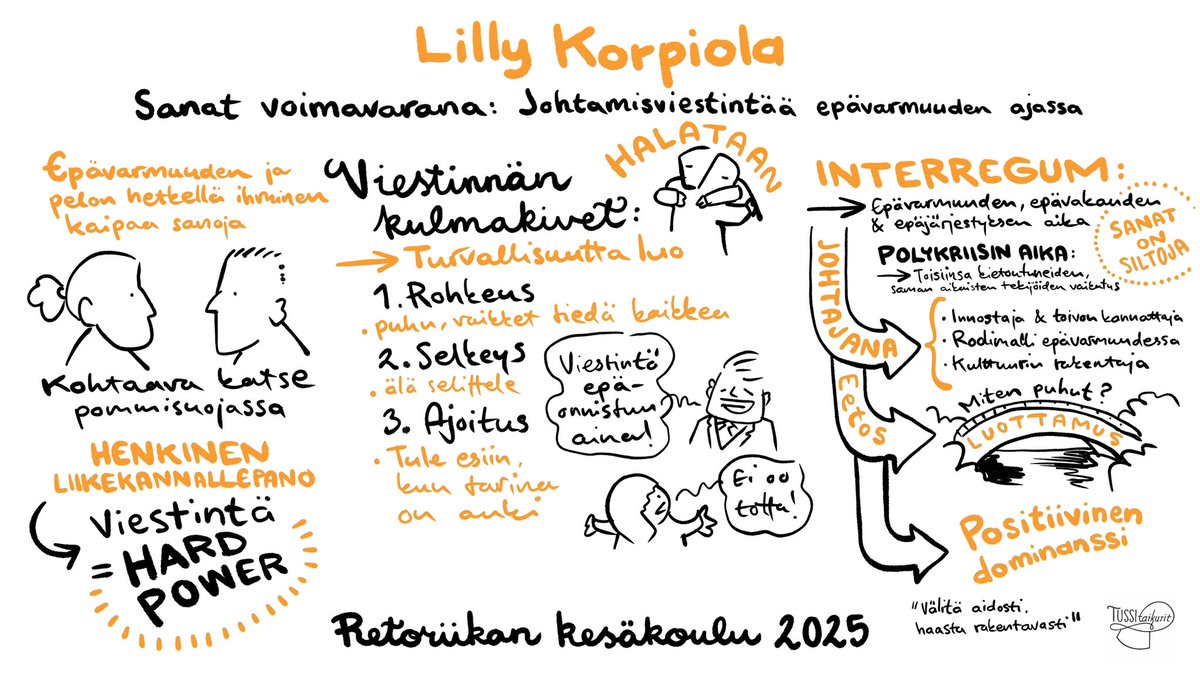 Lilly Korpiola
Sanat voimavarana: Johtamisviestintää epävarmuuden ajassa
Epävarmuuden ja
pelon hetkellä ihminen
kaipaa sanoja
Kohtaava katse
pommisuojassa
HENKINEN
LIIKEKANNALLEPANO
Viestintä
= HARD
POWER
Viestinnän
kulmakivet:
HALATAAN
Turvallisuutta luo
1. Rohkeus
• puhu, vaikket tiedä kaikkea
2. Selkeys
• älä selittele
3. Ajoitus
• Tule esiin,
kun tarina
on auki
Viestintä
epä-
onnistuu
aina!
Ei oo
totta!
INTERREGUM:
Epävarmuuden, epävakauden
& epäjärjestyksen aika
SANAT
ON
SILTOJA
POLYKRIISIN AIKA:
Toisiinsa kietoutuneiden,
saman aikaisten tekijöiden vaikutus
JOHTAJANA
• Innostaja & toivon kannattaja
• Roolimalli epävarmuudessa
• Kulttuurin rakentaja
EETOS
Miten puhut?
LUOTTAMUS
Positiivinen
dominanssi
"Välitä aidosti,
haasta rakentavasti"
Retoriikan kesäkoulu 2025
TUSSItaikurit